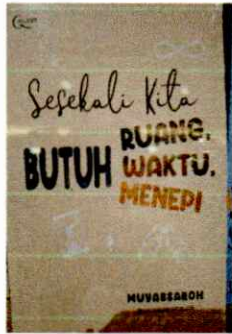 Sesekali Kita
BUTUH RUANG,
WAKTU,
MENEPI
MUYASSAROH